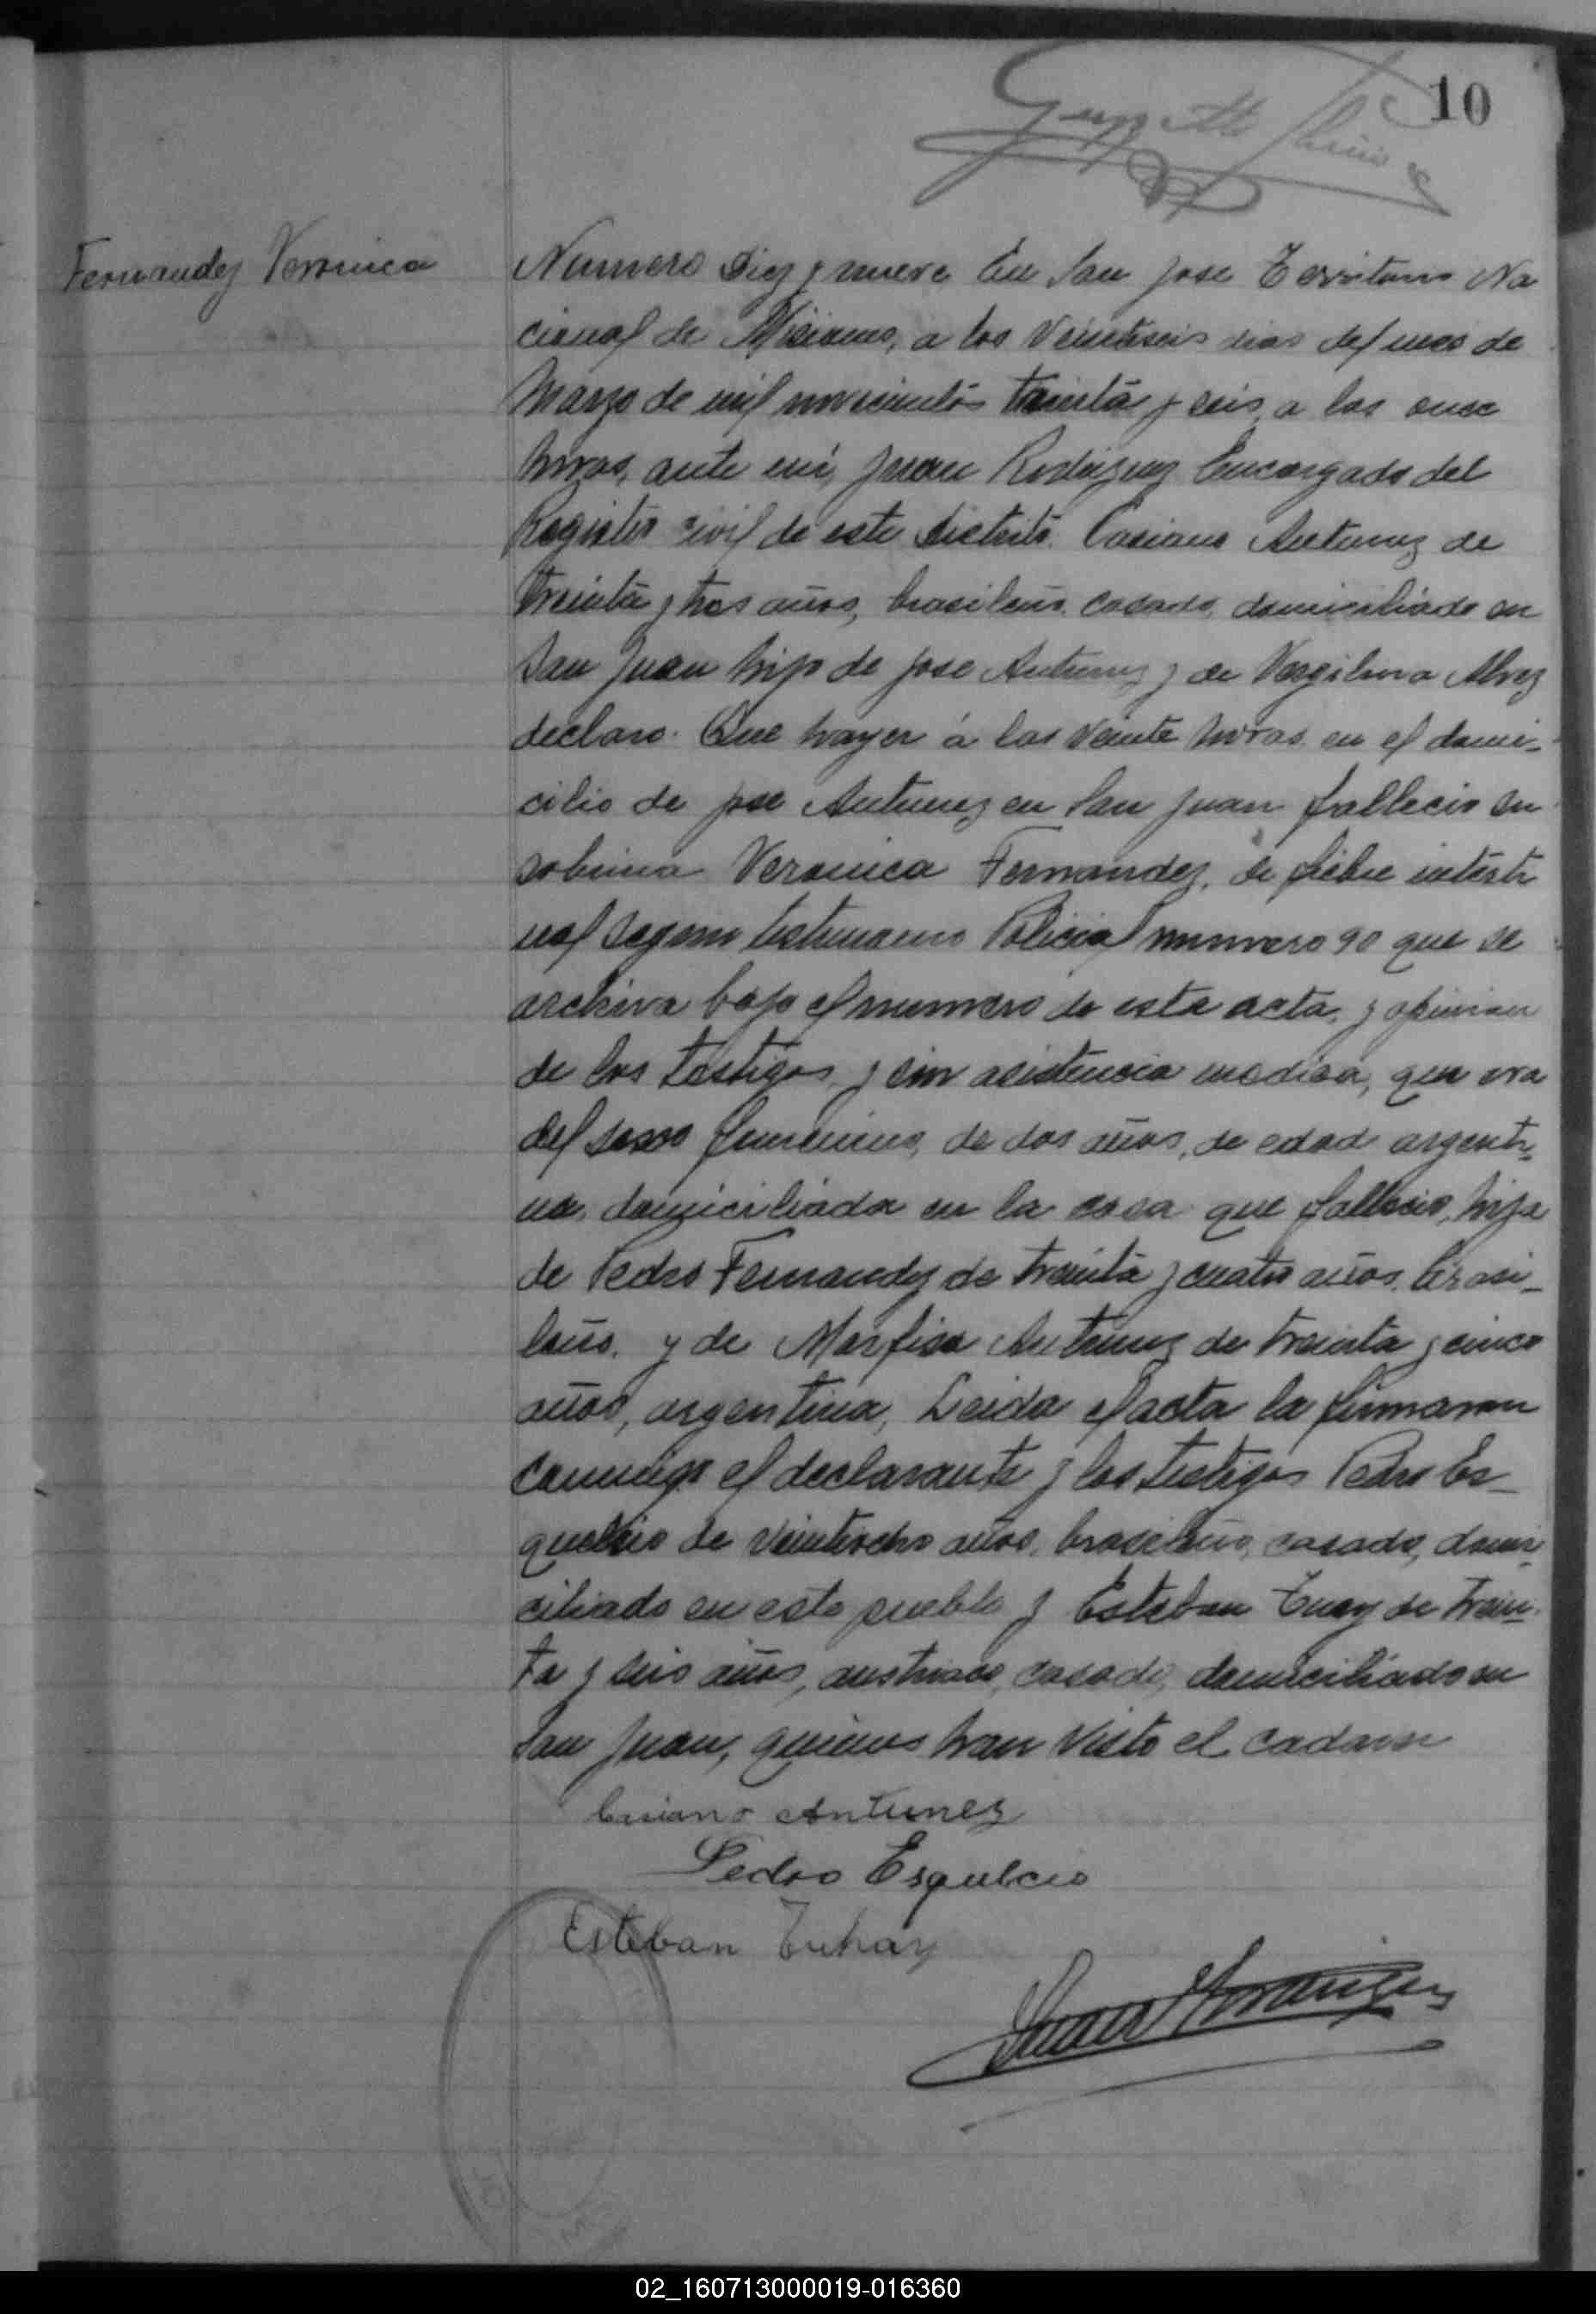 10
Fernandez Veronica
Numero Diez y nueve En San Jose Territorio Na
cional de Misiones, a los Veintiseis dias del mes de
Marzo de mil novecientos treinta y seis, a las once
horas, ante mi, Juan Rodriguez Encargado del
Registro civil de este Distrito. Casiano Antunez de
treinta y tres años, brasileño, casado, domiciliado en
San Juan hijo de Jose Antunez y de Vergilina Alvez
declaro: Que hayer á las veinte horas en el domi-
cilio de Jose Antunez en San Juan fallecio su
sobrina Veronica Fernandez, de fiebre intesti
nal segun testimonio Policial numero 90 que se
archiva bajo el numero de esta acta, y opinion
de los testigos y sin asistencia medica, que era
del sexo femenino, de dos años, de edad argenti-
na, domiciliada en la casa que fallecio, hija
de Pedro Fernandez de treinta y cuatro años, brasi-
leño, y de Marfisa Antunez de treinta y cinco
años, argentina, Leida el acta la firmaron
conmigo el declarante y los testigos Pedro Es-
quelcio de veintiocho años, brasileño, casado, domi-
ciliado en este pueblo y Esteban Tuay de trein-
ta y seis años, austriaco, casado, domiciliado en
San Juan, quienes han visto el cadaver
Casiano Antunez
Pedro Esquelcio
Esteban Tuhay
Juan Rodriguez
02_160713000019-016360